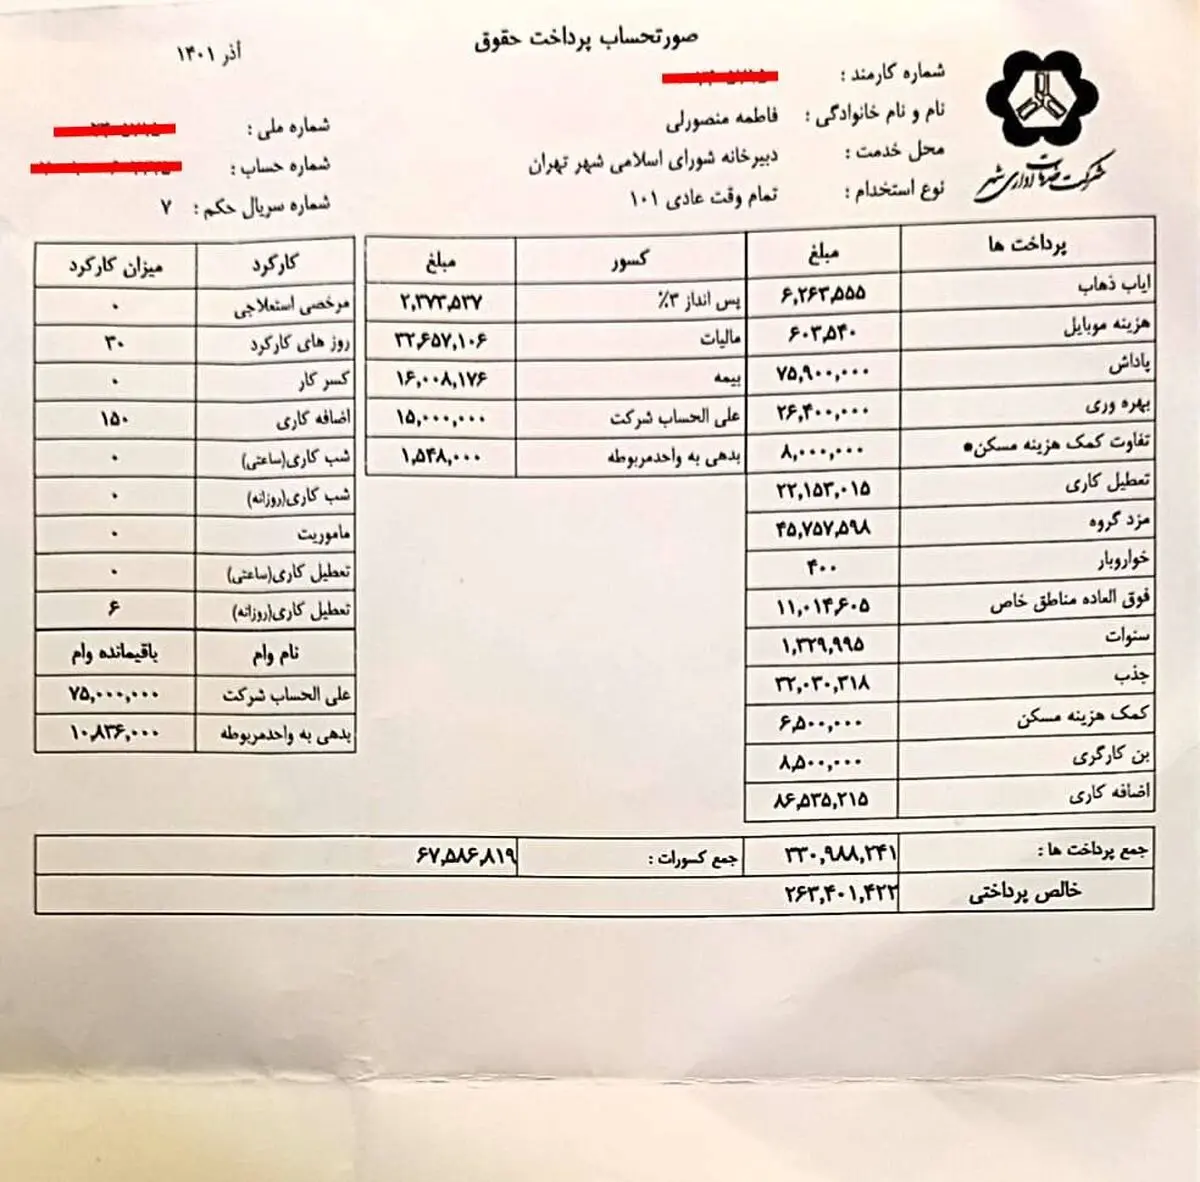 صورتحساب پرداخت حقوق
آذر ۱۴۰۱
شماره کارمند :
نام و نام خانوادگی : فاطمه منصورلی
محل خدمت : دبیرخانه شورای اسلامی شهر تهران
نوع استخدام : تمام وقت عادی ۱۰۱
شماره ملی :
شماره حساب :
شماره سریال حکم : ۷
شرکت خدمات اداری شهر
پرداخت ها مبلغ
ایاب ذهاب ۶,۲۶۳,۵۵۵
هزینه موبایل ۶۰۳,۵۴۰
پاداش ۷۵,۹۰۰,۰۰۰
بهره وری ۲۶,۴۰۰,۰۰۰
تفاوت کمک هزینه مسکن● ۸,۰۰۰,۰۰۰
تعطیل کاری ۲۲,۱۵۳,۰۱۵
مزد گروه ۴۵,۷۵۷,۵۹۸
خواروبار ۴۰۰
فوق العاده مناطق خاص ۱۱,۰۱۴,۶۰۵
سنوات ۱,۳۲۹,۹۹۵
جذب ۳۲,۰۳۰,۳۱۸
کمک هزینه مسکن ۶,۵۰۰,۰۰۰
بن کارگری ۸,۵۰۰,۰۰۰
اضافه کاری ۸۶,۵۳۵,۲۱۵
کسور مبلغ
پس انداز ۳% ۲,۳۷۳,۵۳۷
مالیات ۳۲,۶۵۷,۱۰۶
بیمه ۱۶,۰۰۸,۱۷۶
علی الحساب شرکت ۱۵,۰۰۰,۰۰۰
بدهی به واحدمربوطه ۱,۵۴۸,۰۰۰
کارکرد میزان کارکرد
مرخصی استعلاجی ۰
روز های کارکرد ۳۰
کسر کار ۰
اضافه کاری ۱۵۰
شب کاری(ساعتی) ۰
شب کاری(روزانه) ۰
ماموریت ۰
تعطیل کاری(ساعتی) ۰
تعطیل کاری(روزانه) ۶
نام وام باقیمانده وام
علی الحساب شرکت ۷۵,۰۰۰,۰۰۰
بدهی به واحدمربوطه ۱۰,۸۳۶,۰۰۰
جمع پرداخت ها : ۳۳۰,۹۸۸,۲۴۱ جمع کسورات : ۶۷,۵۸۶,۸۱۹
خالص پرداختی ۲۶۳,۴۰۱,۴۲۲